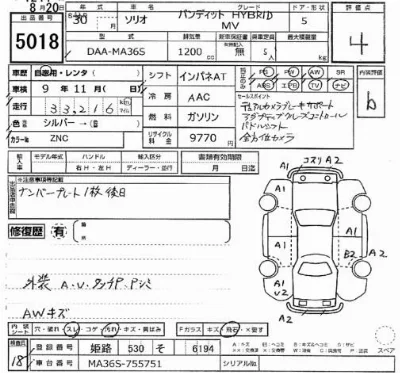 8月20日
出品番号
5018
30年
ソリオ
バンディット HYBRID MV
グレード
ドア・形状
5
評価点
4
型式
DAA-MA36S
排気量
1200 cc
車検証有無
無
乗車定員
5人
最大積載量
車歴
自家用・レンタ( )
車検
9年11月( 日)
走行
33,216
km
色
シルバー→( )
カラーNo
ZNC
シフト
インパネAT
冷房
AAC
燃料
ガソリン
リサイクル料金
9770
円
PS PW AW SR ナビ
ABS エアB TV カワ
内装評価
b
セールスポイント
デュアルカメラブレーキサポート
アダプティブクルーズコントロール
パドルシフト
全方位カメラ
輸入車
モデル年式
ハンドル
輸入区分
書類有効期限
年
右H・左H
ディーラー・並行
月 日迄
※注意事項等記載
ナンバープレート1枚後日
修復歴
有
外装 A.U.
AWキズ
コスリ A2
A1
A1
A1
A1
B2
A1
A1
U2
A2
内装シート
穴・破れ・スレ・コゲ・汚れ・キズ・黄ばみ
Fガラス キズ・飛石・×要す
スペア
18
登録番号
姫路 530 そ 6194
車台番号
MA36S-755751
シリアルNo.